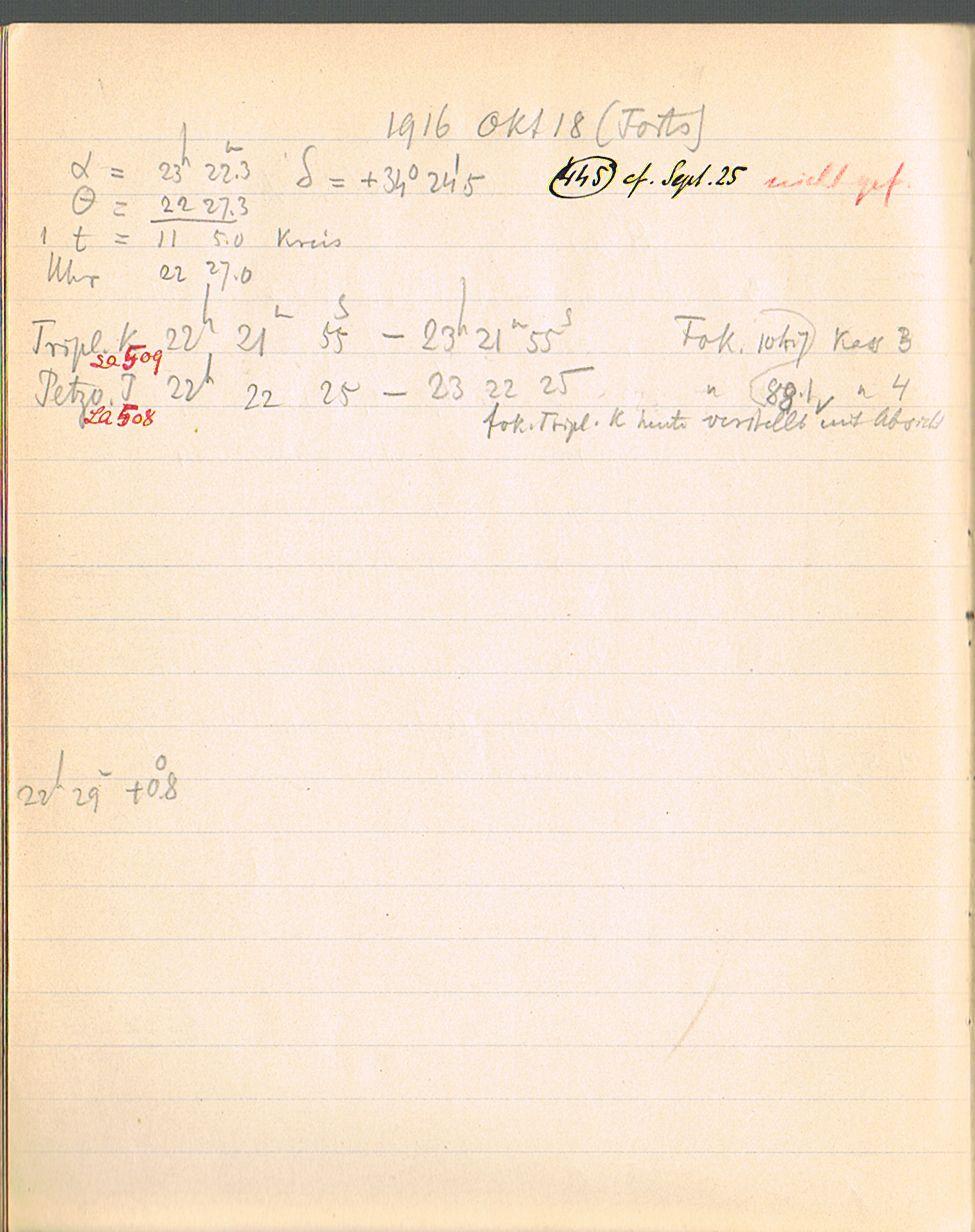 1916 Okt 18 (Forts)
α = 23h 22m.3 δ = +34° 24'.5 (445) cf. Sept. 25 nicht gef.
Θ = 22 27.3
t = 11 5.0 Kreis
Uhr 22 27.0
Tripl. K 22h 21m 55s – 23h 21m 55s Fok. Kass 3
La 509
Petzv. I 22h 22 25 – 23 22 25 " " 4
La 508
fok. Tripl. K heute verstellt mit Absicht
22h 29m +0°.8